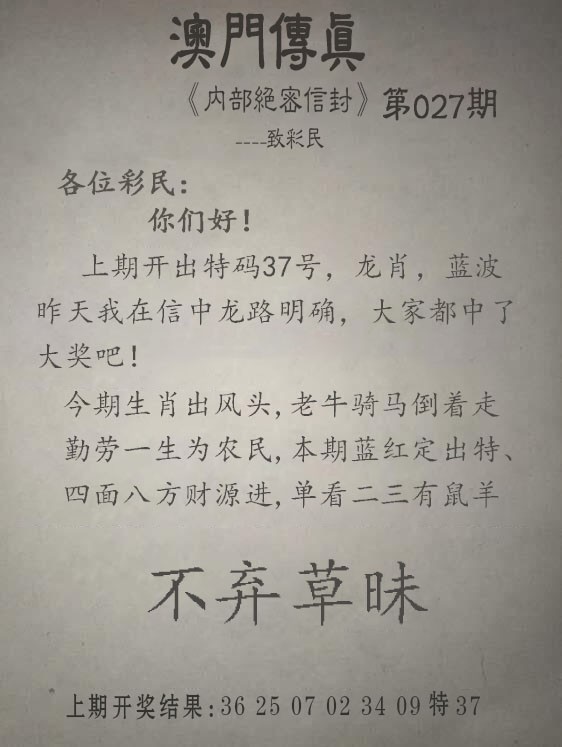 澳門傳眞
《内部絕密信封》第027期
----致彩民
各位彩民:
你们好!
上期开出特码37号，龙肖，蓝波
昨天我在信中龙路明确，大家都中了
大奖吧!
今期生肖出风头,老牛骑马倒着走
勤劳一生为农民,本期蓝红定出特、
四面八方财源进,单看二三有鼠羊
不弃草昧
上期开奖结果:36 25 07 02 34 09特37